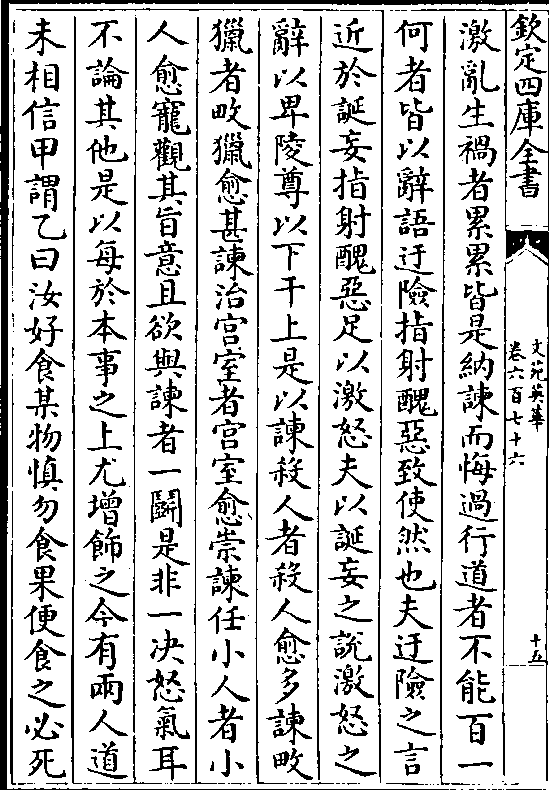 欽定四庫全書
文苑英華
卷六百七十六
十五
激亂生禍者累累皆是納諫而悔過行道者不能百一
何者皆以辭語迂險指射醜惡致使然也夫迂險之言
近於誕妄指射醜惡足以激怒夫以誕妄之說激怒之
辭以卑陵尊以下干上是以諫殺人者殺人愈多諫畋
獵者畋獵愈甚諫治宫室者宫室愈崇諫任小人者小
人愈寵觀其旨意且欲與諫者一鬬是非一决怒氣耳
不論其他是以每於本事之上尤增飾之今有兩人道
未相信甲謂乙曰汝好食某物慎勿食果便食之必死